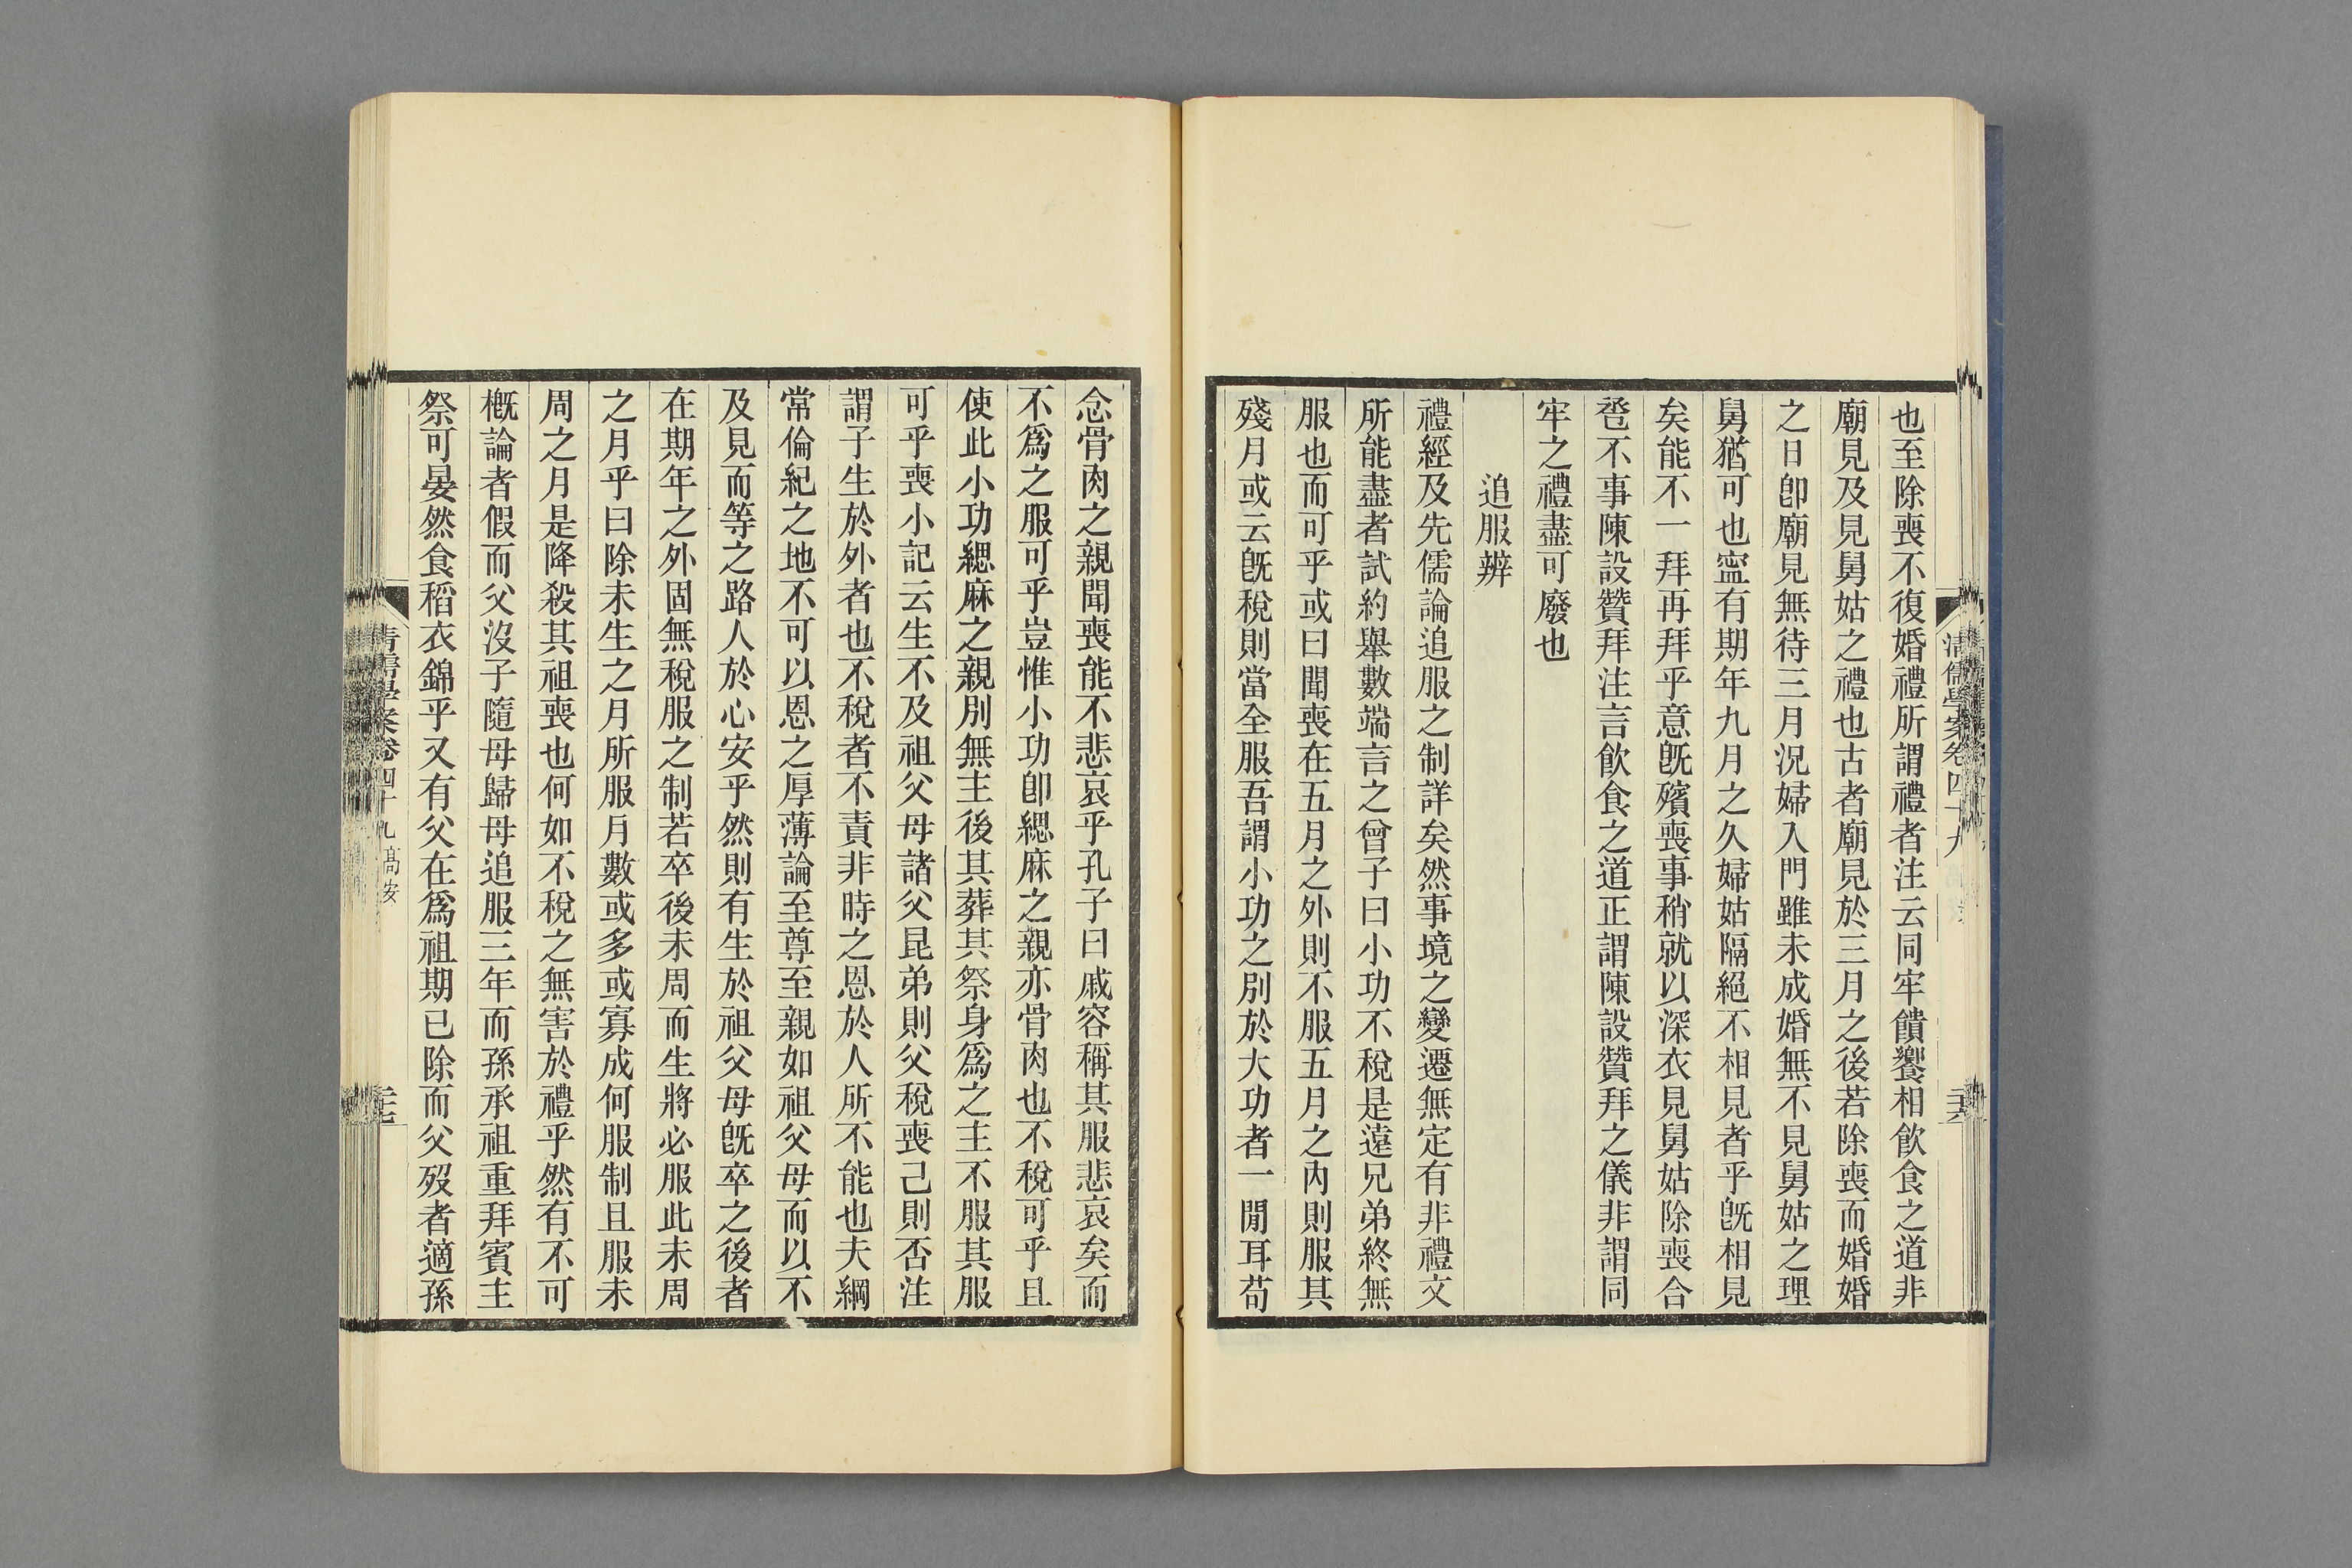 也至除喪不復婚禮所謂禮者注云同牢饋饗相飮食之道非
廟見及見舅姑之禮也古者廟見於三月之後若除喪而婚婚
之日卽廟見無待三月況婦入門雖未成婚無不見舅姑之理
舅猶可也寍有期年九月之久婦姑隔絕不相見者乎旣相見
矣能不一拜再拜乎意旣殯喪事稍就以深衣見舅姑除喪合
卺不事陳設贊拜注言飮食之道正謂陳設贊拜之儀非謂同
牢之禮盡可廢也
追服辨
禮經及先儒論追服之制詳矣然事境之變遷無定有非禮文
所能盡者試約舉數端言之曾子曰小功不稅是遠兄弟終無
服也而可乎或曰聞喪在五月之外則不服五月之內則服其
殘月或云旣稅則當全服吾謂小功之別於大功者一閒耳苟
清儒學案卷四十九
二十六
念骨肉之親聞喪能不悲哀乎孔子曰戚容稱其服悲哀矣而
不爲之服可乎豈惟小功卽緦麻之親亦骨肉也不稅可乎且
使此小功緦麻之親別無主後其葬其祭身爲之主不服其服
可乎喪小記云生不及祖父母諸父昆弟則父稅喪己則否注
謂子生於外者也不稅者不責非時之恩於人所不能也夫綱
常倫紀之地不可以恩之厚薄論至尊至親如祖父母而以不
及見而等之路人於心安乎然則有生於祖父母旣卒之後者
在期年之外固無稅服之制若卒後未周而生將必服此未周
之月乎曰除未生之月所服月數或多或寡成何服制且服未
周之月是降殺其祖喪也何如不稅之無害於禮乎然有不可
槪論者假而父沒子隨母歸母追服三年而孫承祖重拜賓主
祭可晏然食稻衣錦乎又有父在爲祖期已除而父歿者適孫
清儒學案卷四十九 高安
二十七